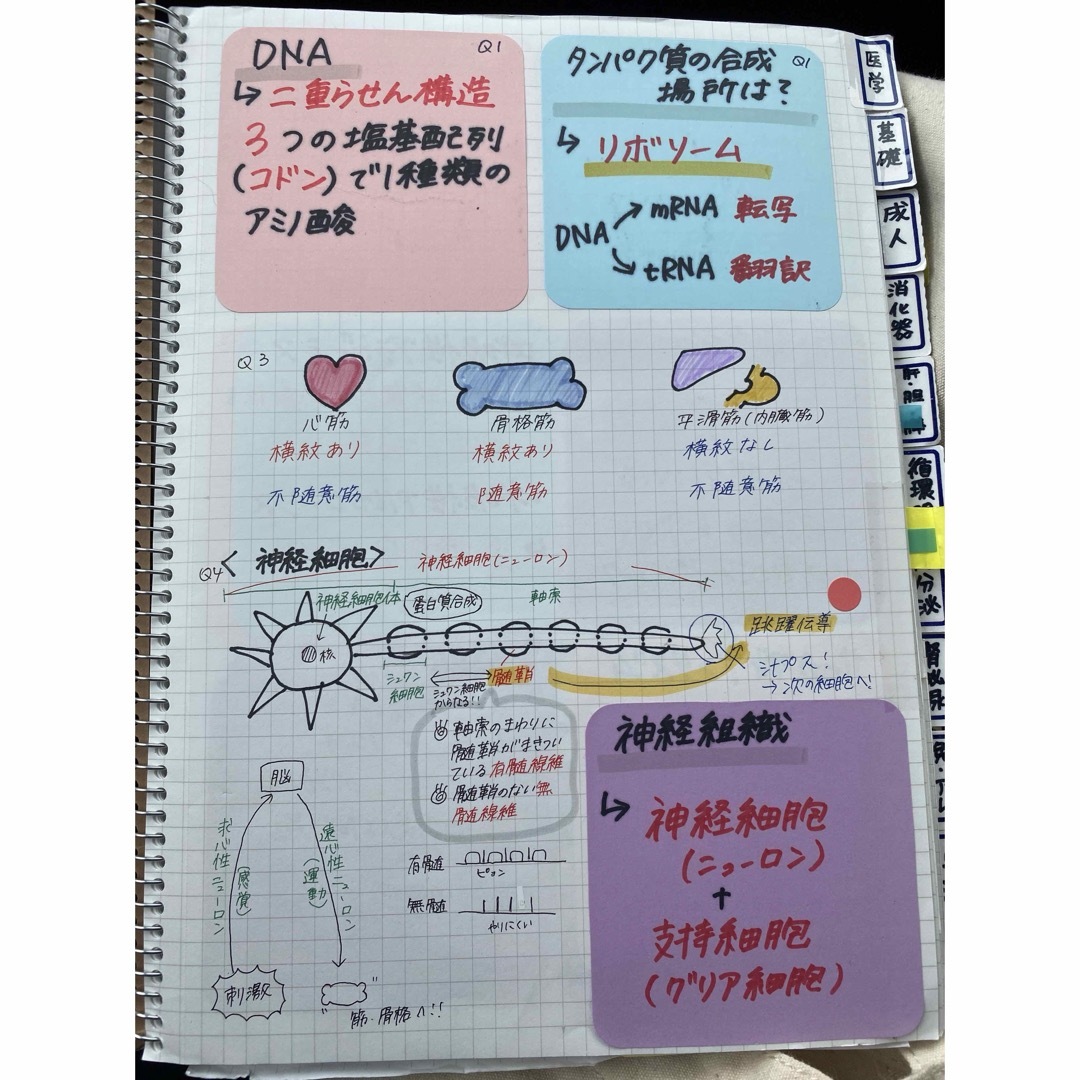 DNA
Q1
↳二重らせん構造
3つの塩基配列
(コドン)で1種類の
アミノ酸
タンパク質の合成
場所は?
Q1
↳リボソーム
DNA
mRNA 転写
tRNA 翻訳
Q3
心筋
横紋あり
不随意筋
骨格筋
横紋あり
随意筋
平滑筋(内臓筋)
横紋なし
不随意筋
Q4
<神経細胞>
神経細胞(ニューロン)
神経細胞体
蛋白質合成
軸索
核
シュワン
細胞
シュワン細胞
からなる!!
髄鞘
跳躍伝導
シナプス!
→次の細胞へ!
軸索のまわりに
髄鞘がまきつい
ている有髄線維
髄鞘のない無
髄線維
有髄
ピョン
無髄
やりにくい
脳
求心性ニューロン
(感覚)
遠心性ニューロン
(運動)
刺激
筋・骨格へ!!
神経組織
↳神経細胞
(ニューロン)
+
支持細胞
(グリア細胞)
医学
基礎
成人
消化器
肝・胆
循環
分泌